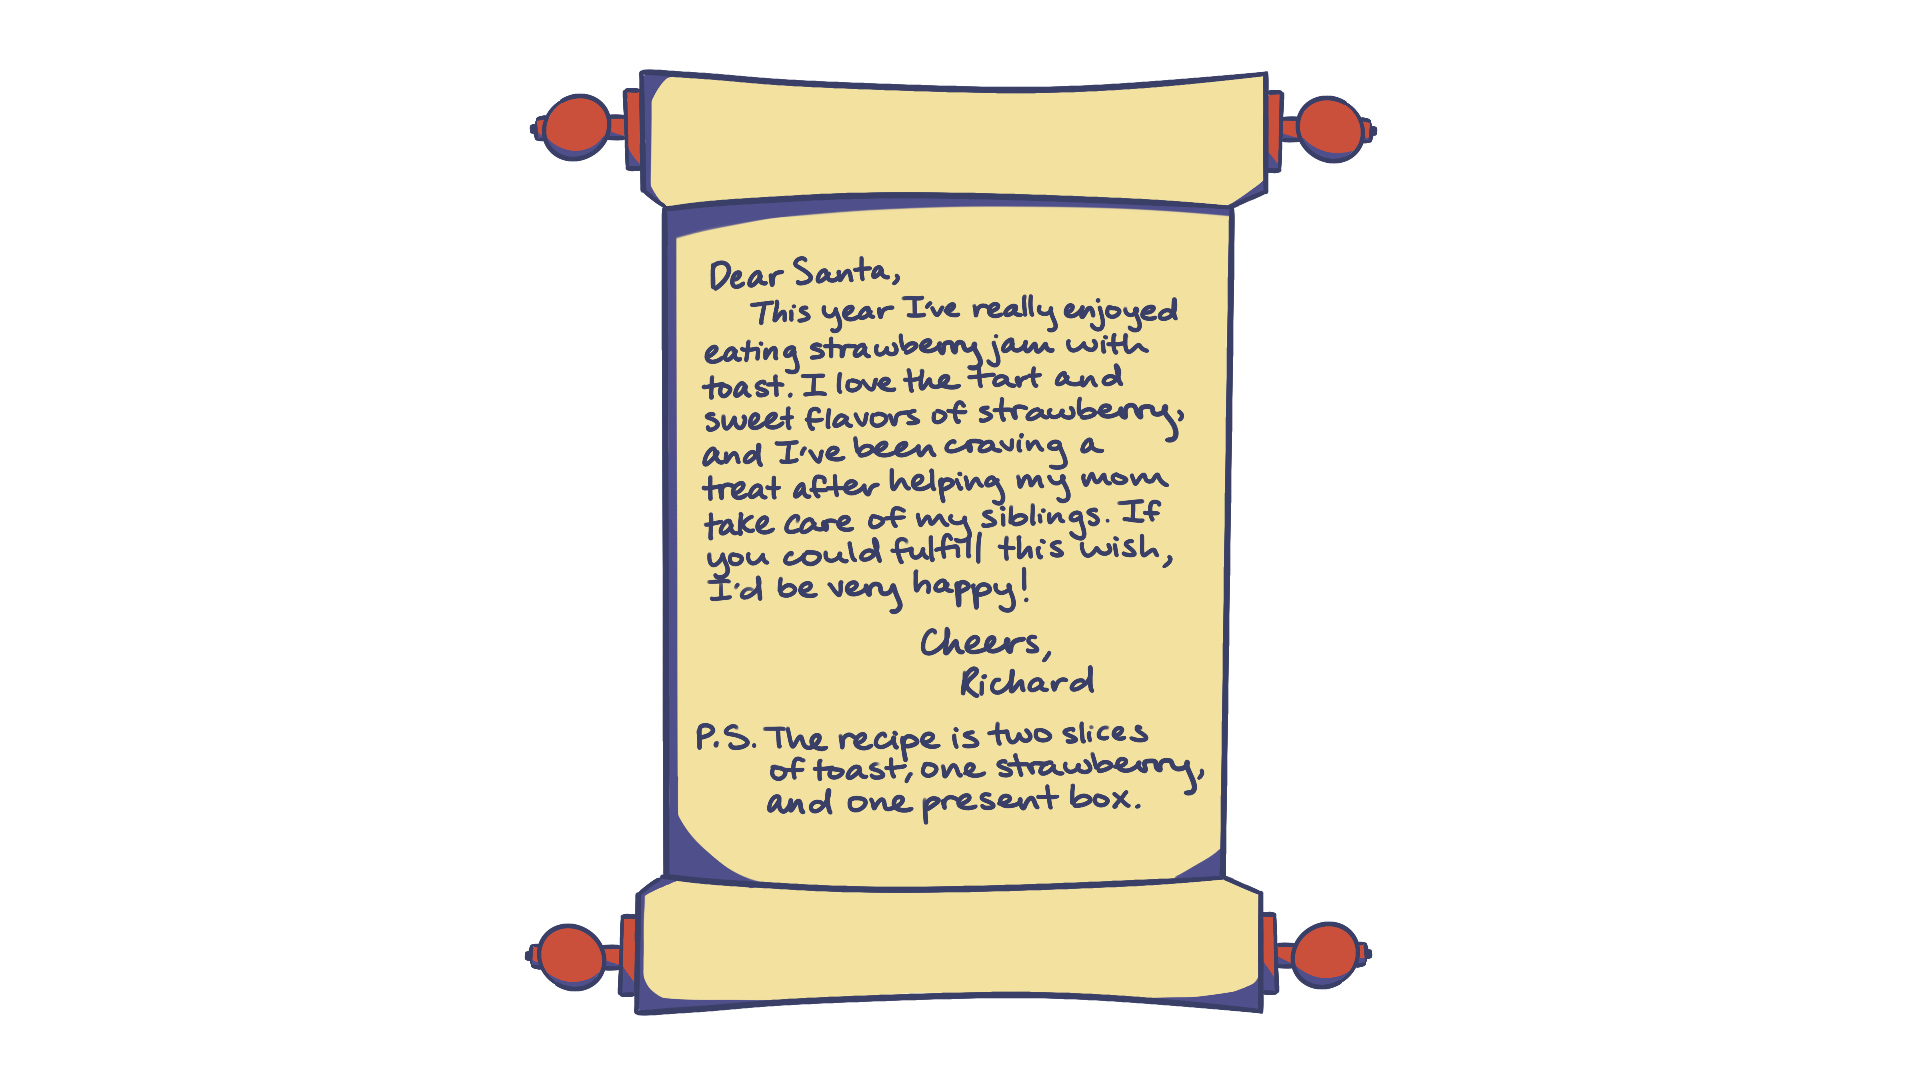 Dear Santa,
This year I've really enjoyed
eating strawberry jam with
toast. I love the tart and
sweet flavors of strawberry,
and I've been craving a
treat after helping my mom
take care of my siblings. If
you could fulfill this wish,
I'd be very happy!
Cheers,
Richard
P.S. The recipe is two slices
of toast, one strawberry,
and one present box.